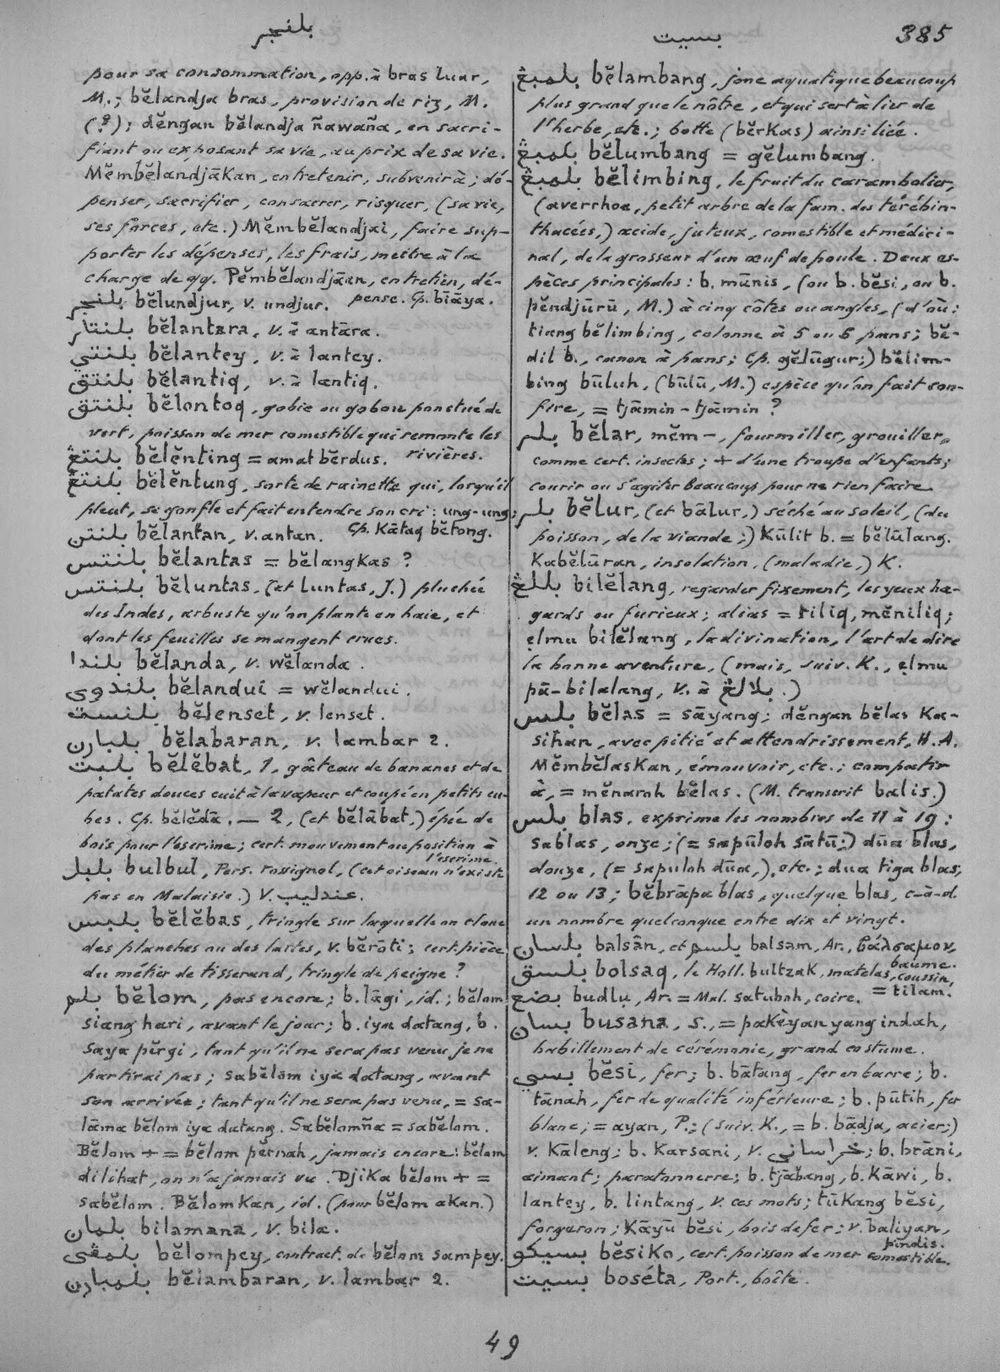 بلنجر
بسيت
385
pour sa consommation, opp. à bras luar,
M.; bĕlandja bras, provision de riz, M.
(?); dĕngan bĕlandja ñawaña, en sacri-
fiant ou exposant sa vie, au prix de sa vie.
Mĕmbĕlandjākan, entretenir, subvenir à; dé-
penser, sacrifier, consacrer, risquer, (sa vie,
ses forces, etc.) Mĕmbĕlandjai, faire sup-
porter les dépenses, les frais, mettre à la
charge de qq. Pĕmbĕlandjāan, entretien, dé-
pense. Cp. bīāya.
بلنجر bĕlundjur, v. undjur.
بلنتار bĕlantara, v. à antāra.
بلنتي bĕlantey, v. à lantey.
بلنتق bĕlantiq, v. à lantiq.
بلنتق bĕlontoq, gobie ou gobou ponctué de
vert, poisson de mer comestible qui remonte les
rivières.
بلنتڠ bĕlĕnting = amat bĕrdus.
بلنتڠ bĕlĕntung, sorte de rainette qui, lorsqu'il
pleut, se gonfle et fait entendre son cri: ung-ung;
Cp. Kātaq bĕtong.
بلنتن bĕlantan, v. antan.
بلنتس bĕlantas = bĕlangkas ?
بلنتس bĕluntas, (et luntas, J.) pluchée
des Indes, arbuste qu'on plante en haie, et
dont les feuilles se mangent crues.
بلندا bĕlanda, v. wĕlanda.
بلندوى bĕlandui = wĕlandui.
بلنست bĕlenset, v. lenset.
بلبارن bĕlabaran, v. lambar 2.
بلبت bĕlĕbat, 1, gâteau de bananes et de
patates douces cuit à la vapeur et coupé en petits cu-
bes. Cp. bĕlĕdā. — 2, (et bĕlābat.) épée de
bois pour l'escrime; cert. mouvement ou position à
l'escrime.
بلبل bulbul, Pers. rossignol, (cet oiseau n'existe
pas en Malaisie.) V. عندليب.
بلبس bĕlĕbas, tringle sur laquelle on cloue
des planches ou des lattes, v. bĕrōti; cert. pièce
du métier de tisserand, tringle de peigne ?
بلم bĕlom, pas encore; b. lāgi, id.; bĕlom
siang hari, avant le jour; b. iya datang, b.
saya pĕrgi, tant qu'il ne sera pas venu je ne
partirai pas; sabĕlom iya datang, avant
son arrivée; tant qu'il ne sera pas venu, = sa-
lāma bĕlom iya datang. Sabĕlomña = sabĕlom.
Bĕlom + = bĕlom pĕrnah, jamais encore: bĕlom
dilihat, on n'a jamais vu. Djika bĕlom + =
sabĕlom. Bĕlomkan, id. (pour bĕlom akan.)
بلمان bilamana, v. bila.
بلمڤى bĕlompey, contract. de bĕlom sampey.
بلمبارن bĕlambaran, v. lambar 2.
بلمبڠ bĕlambang, jonc aquatique beaucoup
plus grand que le nôtre, et qui sert à lier de
l'herbe, etc.; botte (bĕrkas) ainsi liée.
بلمبڠ bĕlumbang = gĕlumbang.
بلمبڠ bĕlimbing, le fruit du carambolier,
(averrhoa, petit arbre de la fam. des térébin-
thacées,) acide, juteux, comestible et médici-
nal, de la grosseur d'un œuf de poule. Deux es-
pèces principales: b. mānis, (ou b. bĕsi, ou b.
pĕndjūrū, M.) à cinq côtes ou angles, (d'où:
tiang bĕlimbing, colonne à 5 ou 6 pans; bĕ-
dil b., canon à pans; Cp. gĕlūgur;) bĕlim-
bing būluh, (būlū, M.) espèce qu'on fait con-
fire, = tjāmin-tjāmin ?
بلر bĕlar, mĕm-, fourmiller, grouiller,
comme cert. insectes; + d'une troupe d'enfants;
courir ou s'agiter beaucoup pour ne rien faire.
بلر bĕlur, (et bālur,) séché au soleil, (du
poisson, de la viande;) Kūlit b. = bĕlūlang.
Kabĕlūran, insolation, (maladie,) K.
بللڠ bilĕlang, regarder fixement, les yeux ha-
gards ou furieux; alias = tiliq, mĕniliq;
ęlmu bilĕlang, la divination, l'art de dire
la bonne aventure, (mais, suiv. K., ęlmu
pū-bilalang, v. à بلالڠ.)
بلس bĕlas = sāyang; dĕngan bĕlas ka-
sihan, avec pitié et attendrissement, H.A.
Mĕmbĕlaskan, émouvoir, etc.; compatir
à, = mĕnaroh bĕlas. (M. transcrit balis.)
بلس blas, exprime les nombres de 11 à 19:
sablas, onze; (= sapūloh sātū;) dūa blas,
douze, (= sapuloh dūa,), etc.; dua tiga blas,
12 ou 13; bĕbrāpa blas, quelque blas, c-à-d.
un nombre quelconque entre dix et vingt.
بلسان balsān, et بلسم balsam, Ar., βάλσαμον,
baume.
بلسق bolsaq, le Holl. bultzak, matelas, coussin,
= tīlam.
بضع budlu, Ar. = Mal. satubuh, coire.
بسان busana, S., = pakēyan yang indah,
habillement de cérémonie, grand costume.
بسي bĕsi, fer; b. bātang, fer en barre; b.
tānah, fer de qualité inférieure; b. pūtih, fer
blanc; = ayan, P.; (suiv. K., = b. bādja, acier;)
v. Kāleng; b. Karsani, v. خراساني; b. brāni,
aimant; paratonnerre; b. tjābang, b. kāwi, b.
lantey, b. lintang, v. ces mots; tūkang bĕsi,
forgeron; kāyū bĕsi, bois de fer; v. baliyan,
pindis.
بسيكو bĕsiko, cert. poisson de mer comestible.
بسيت boséta, Port., boîte.
49